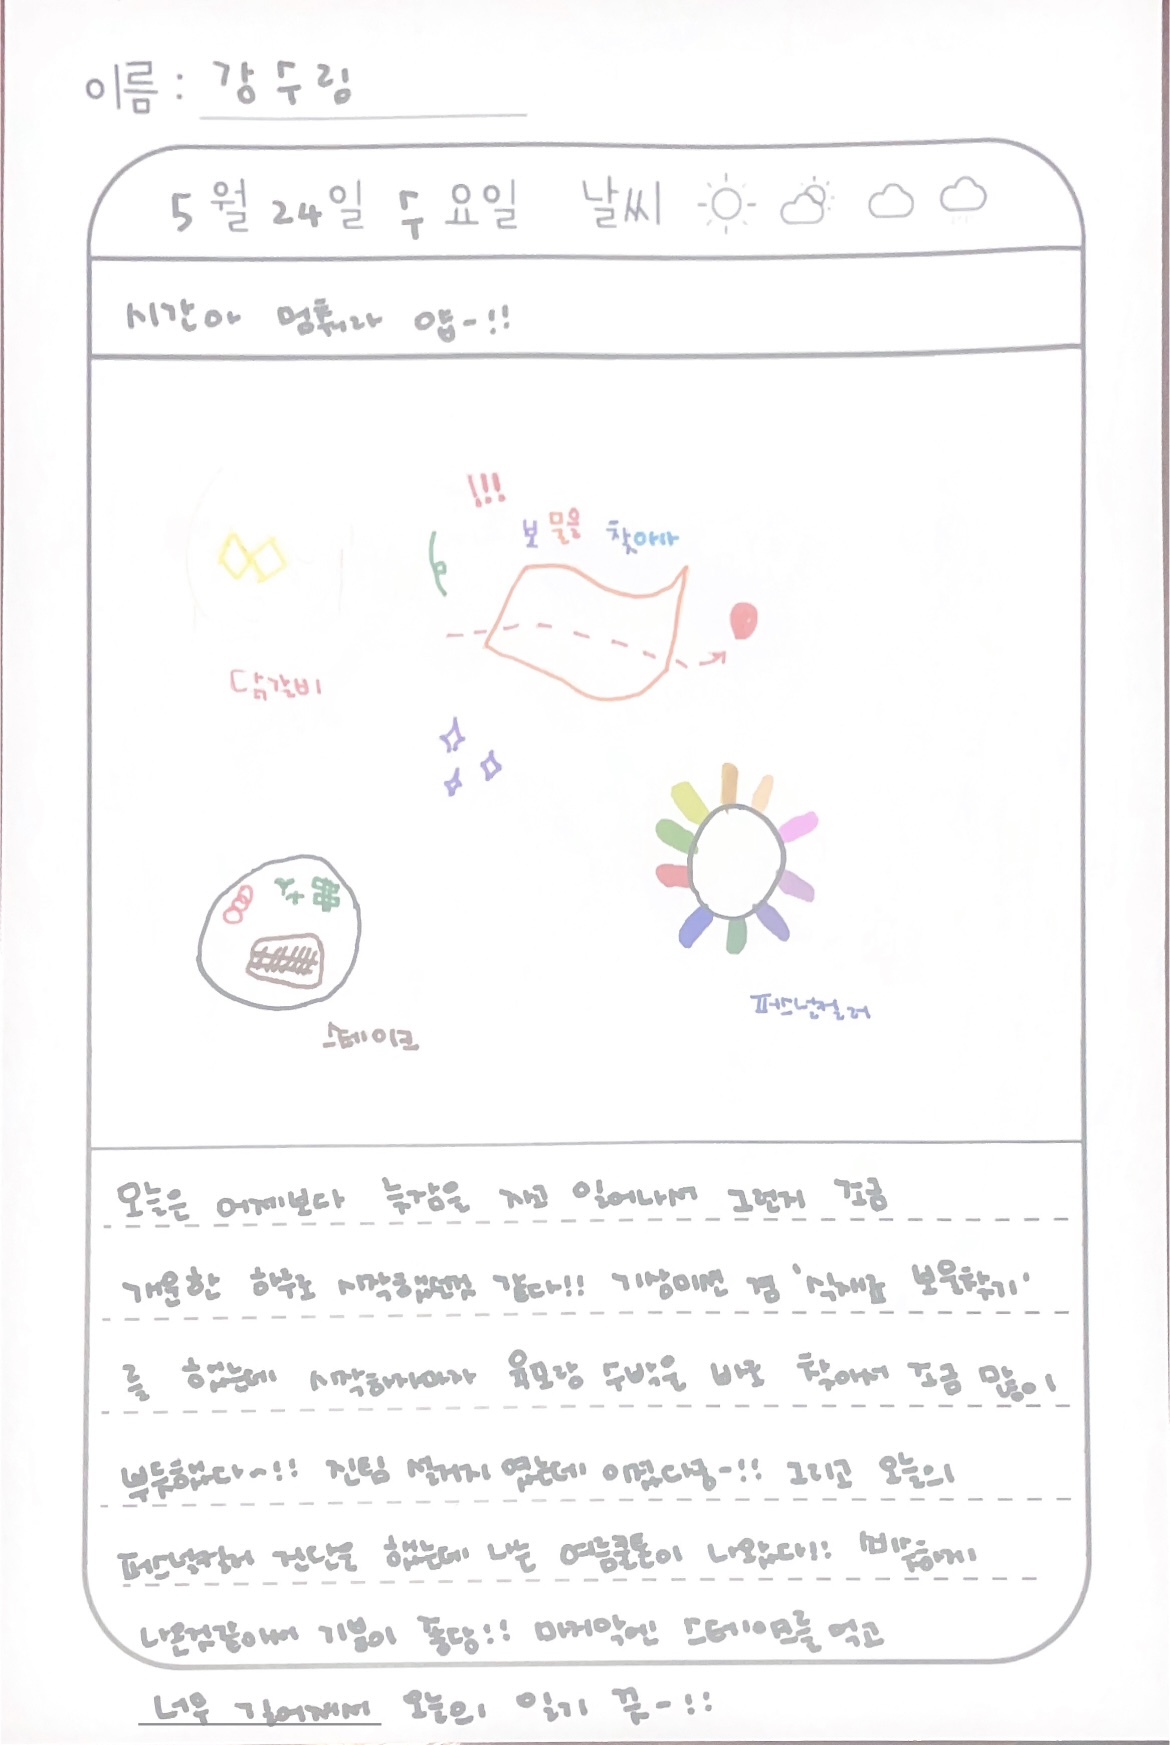 이름 : 강수림
5월 24일 수요일 날씨
시간아 멈춰라 얍-!!
!!!
보물을 찾아라
닭갈비
스테이크
퍼스널컬러
오늘은 어제보다 늦잠을 자고 일어나서 그런지 조금
개운한 하루로 시작했던것 같다!! 기상미션 겸 '식재료 보물찾기'
를 했는데 시작하자마자 육모랑 수박을 바로 찾아서 조금 많이
뿌듯했다~!! 진팀 설거지 였는데 이겼다랑-!! 그리고 오늘의
퍼스널컬러 진단을 했는데 나는 여름쿨톤이 나왔다!! 비슷하게
나온것같아서 기분이 좋당!! 마지막엔 스테이크를 먹고
너무 길어져서 오늘의 일기 끝-!!